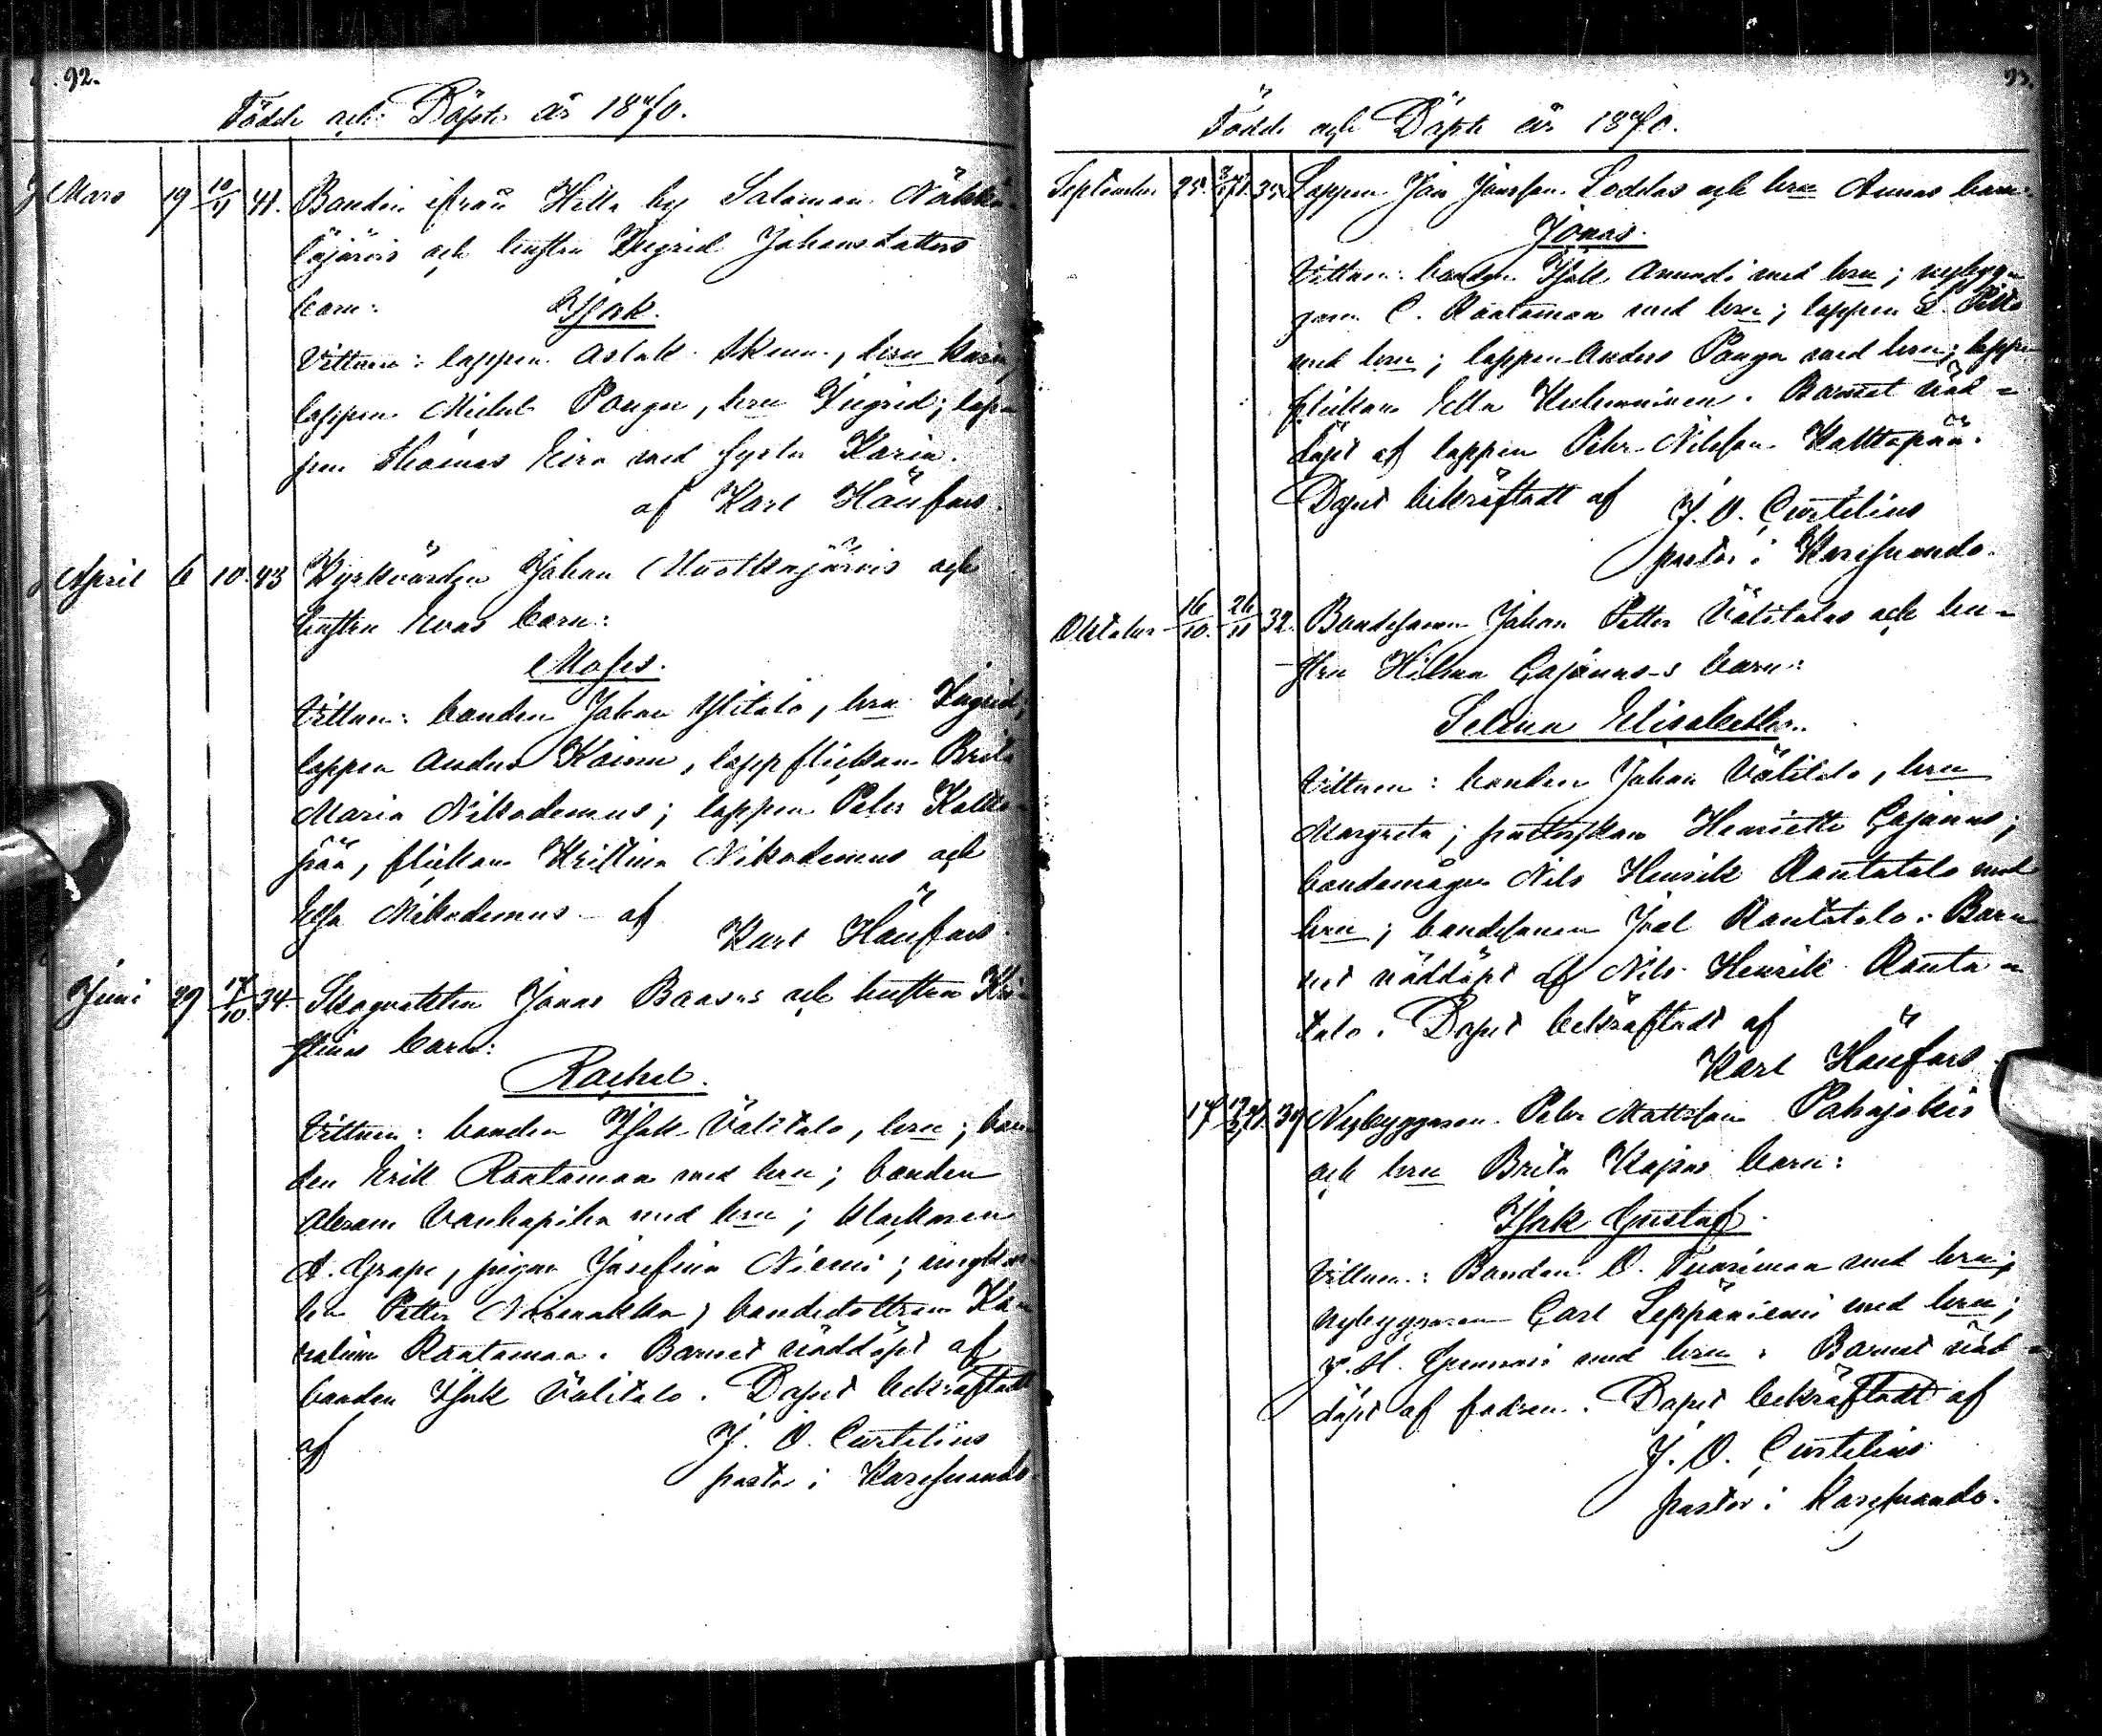 92.
Födde och Döpte år 1870.
Mars 19 10/4 41. Bonden ifrån Hetta by Salomon Näkkä-
läjärvis och hustru Ingrid Johansdotters
barn: Isak.
Vittnen: lappen Aslak, hru Karin,
lappen Michel Ponga, hru Ingrid; lap-
pen Thomas Eira med syster Karin.
af Karl Hänfors.
April 6 10. 43 Kyrkvärden Johan Muotkajärvis och
hustru Evas barn:
Moses.
Vittnen: bonden Johan Ylitalo, hru Ingrid;
lappen Anders, lappflickan Brita
Maria Nikodemus; lappen Peter Kaltto-
pää, flickan Kristina Nikodemus och
Elsa Nikodemus af
Karl Hänfors.
Juni 29 17/10 34. Skogvakten Jonas Baas-s och hustru Kri-
stinas barn:
Rachel.
Vittnen: bonden Isak Välitalo, hru; bon-
den Erik Rantamaa med hru; bonden
Abram Vanhapiha med hru; klockaren
A. Grape, pigan Josefina Niemi; yngkar-
len Petter; bondedottren Ka-
rolina Rantamaa. Barnet nöddöpt af
bonden Isak Välitalo. Dopet bekräftadt
af J. O. Curtelius
pastor i Karesuando.
93.
Födde och Döpte år 1870.
September 25. 35. Lappen Jon Jonsson Loddas och hru Annas barn:
Jonas.
Vittnen: bonden Isak med hru; nybyg-
garn C. Rantamaa med hru; lappen
med hru; lappen Anders Ponga med hru; lapp-
flickan Ella. Barnet nöd-
döpt af lappen Peter Nilsson Kalttopää.
Dopet bekräftadt af J. O. Curtelius
pastor i Karesuando.
Oktober 16/10. 26/11 32. Bondesonen Johan Petter Välitalos och hu-
stru Hilma Cajanus-s barn:
Selma Elisabeth.
Vittnen: bonden Johan Välitalo, hru
Margreta; pastorskan Henriette Cajanus;
bondemågen Nils Henrik Rantatalo med
hru; bondesonen Joel Rantatalo. Bar-
net nöddöpt af Nils Henrik Ranta-
talo. Dopet bekräftadt af
Karl Hänfors.
17 39 Nybyggaren Peter Mattsson Pahajokis
och hru Brita Kajsas barn:
Isak Gustaf.
Vittnen: Bonden O. med hru;
nybyggaren Carl Leppäniemi med hru;
med hru. Barnet nöd-
döpt af fadren. Dopet bekräftadt af
J. O. Curtelius
pastor i Karesuando.